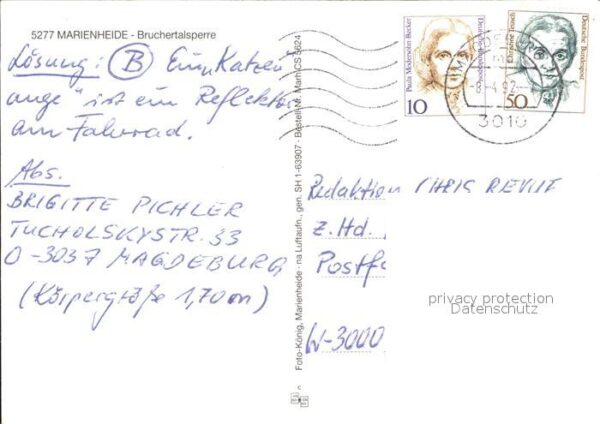 5277 MARIENHEIDE - Bruchertalsperre
Lösung: (B) Ein „Katzen
auge" ist ein Reflektor
am Fahrrad.
Abs.
BRIGITTE PICHLER
TUCHOLSKYSTR. 33
O-3037 MAGDEBURG
(Körpergröße 1,70m)
Foto-König, Marienheide · na Luftaufn., gen. SH 1-63907 - Bestell-Nr. Marh CS 8624
Paula Modersohn-Becker
Deutsche Bundespost
10
Christine Teusch
Deutsche Bundespost
50
MAGDEBURG
-8.-4.92-
3010
Redaktion
z.Hd.
Postf
W-3000
privacy protection
Datenschutz